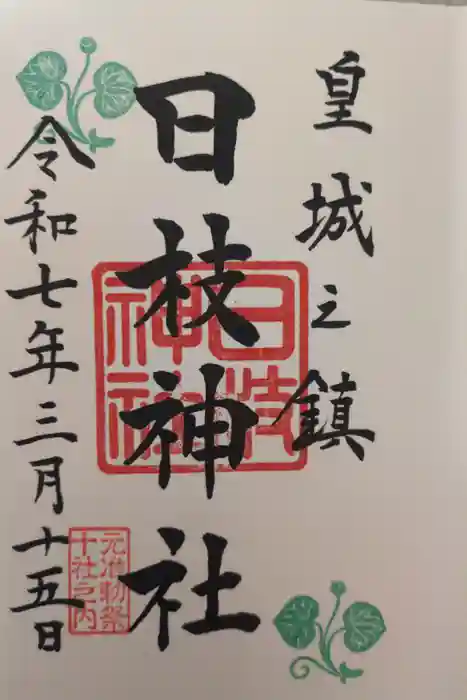 皇城之鎮
日枝神社
日枝
神社
元准勅祭
十社之内
令和七年三月十五日